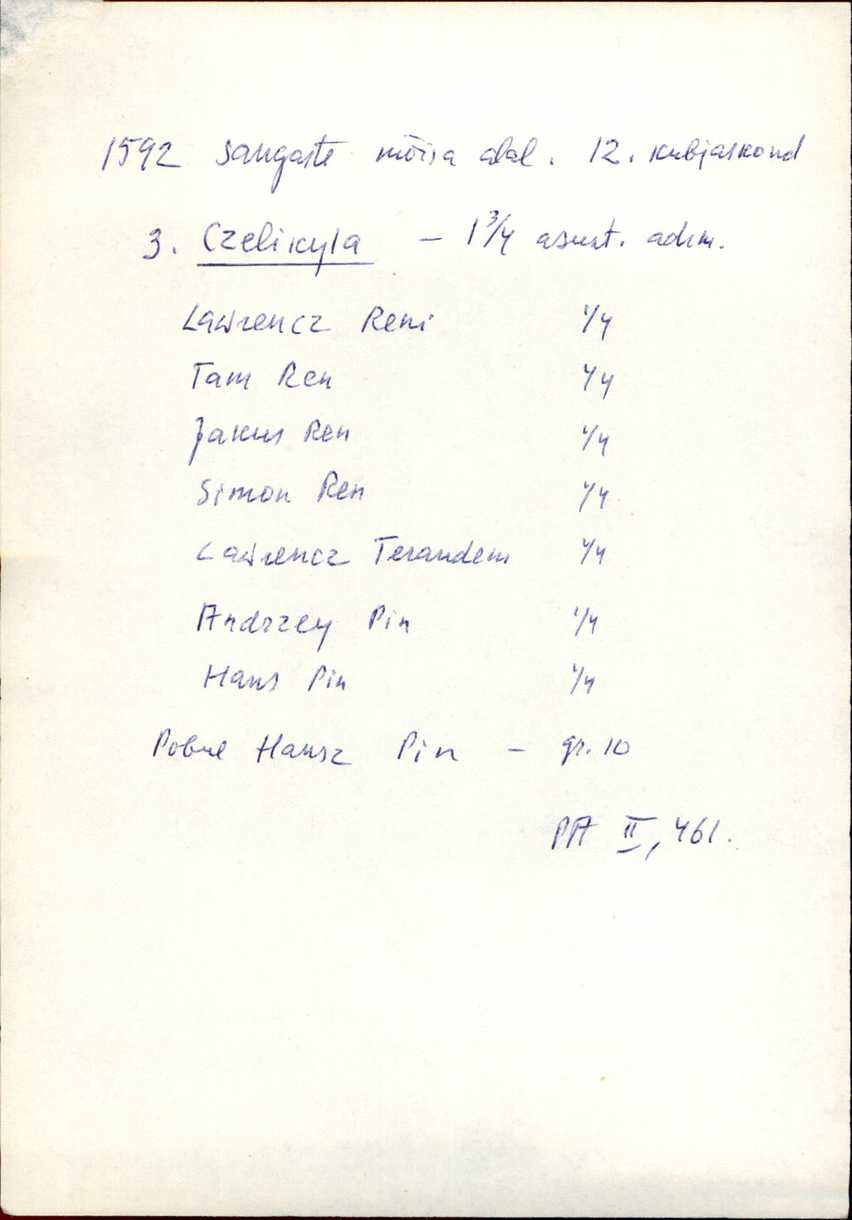 1592 Sangaste mõisa alal. 12. kubjaskond
3. Czelikyla – 1 3/4 asust. adm.
Lawrencz Reni 1/4
Tam Ren 1/4
Jakus Ren 1/4
Simon Ren 1/4
Lawrencz Terandem 1/4
Andrzey Pin 1/4
Hans Pin 1/4
Pobul Hansz Pin – gr. 10
PA II, 461.